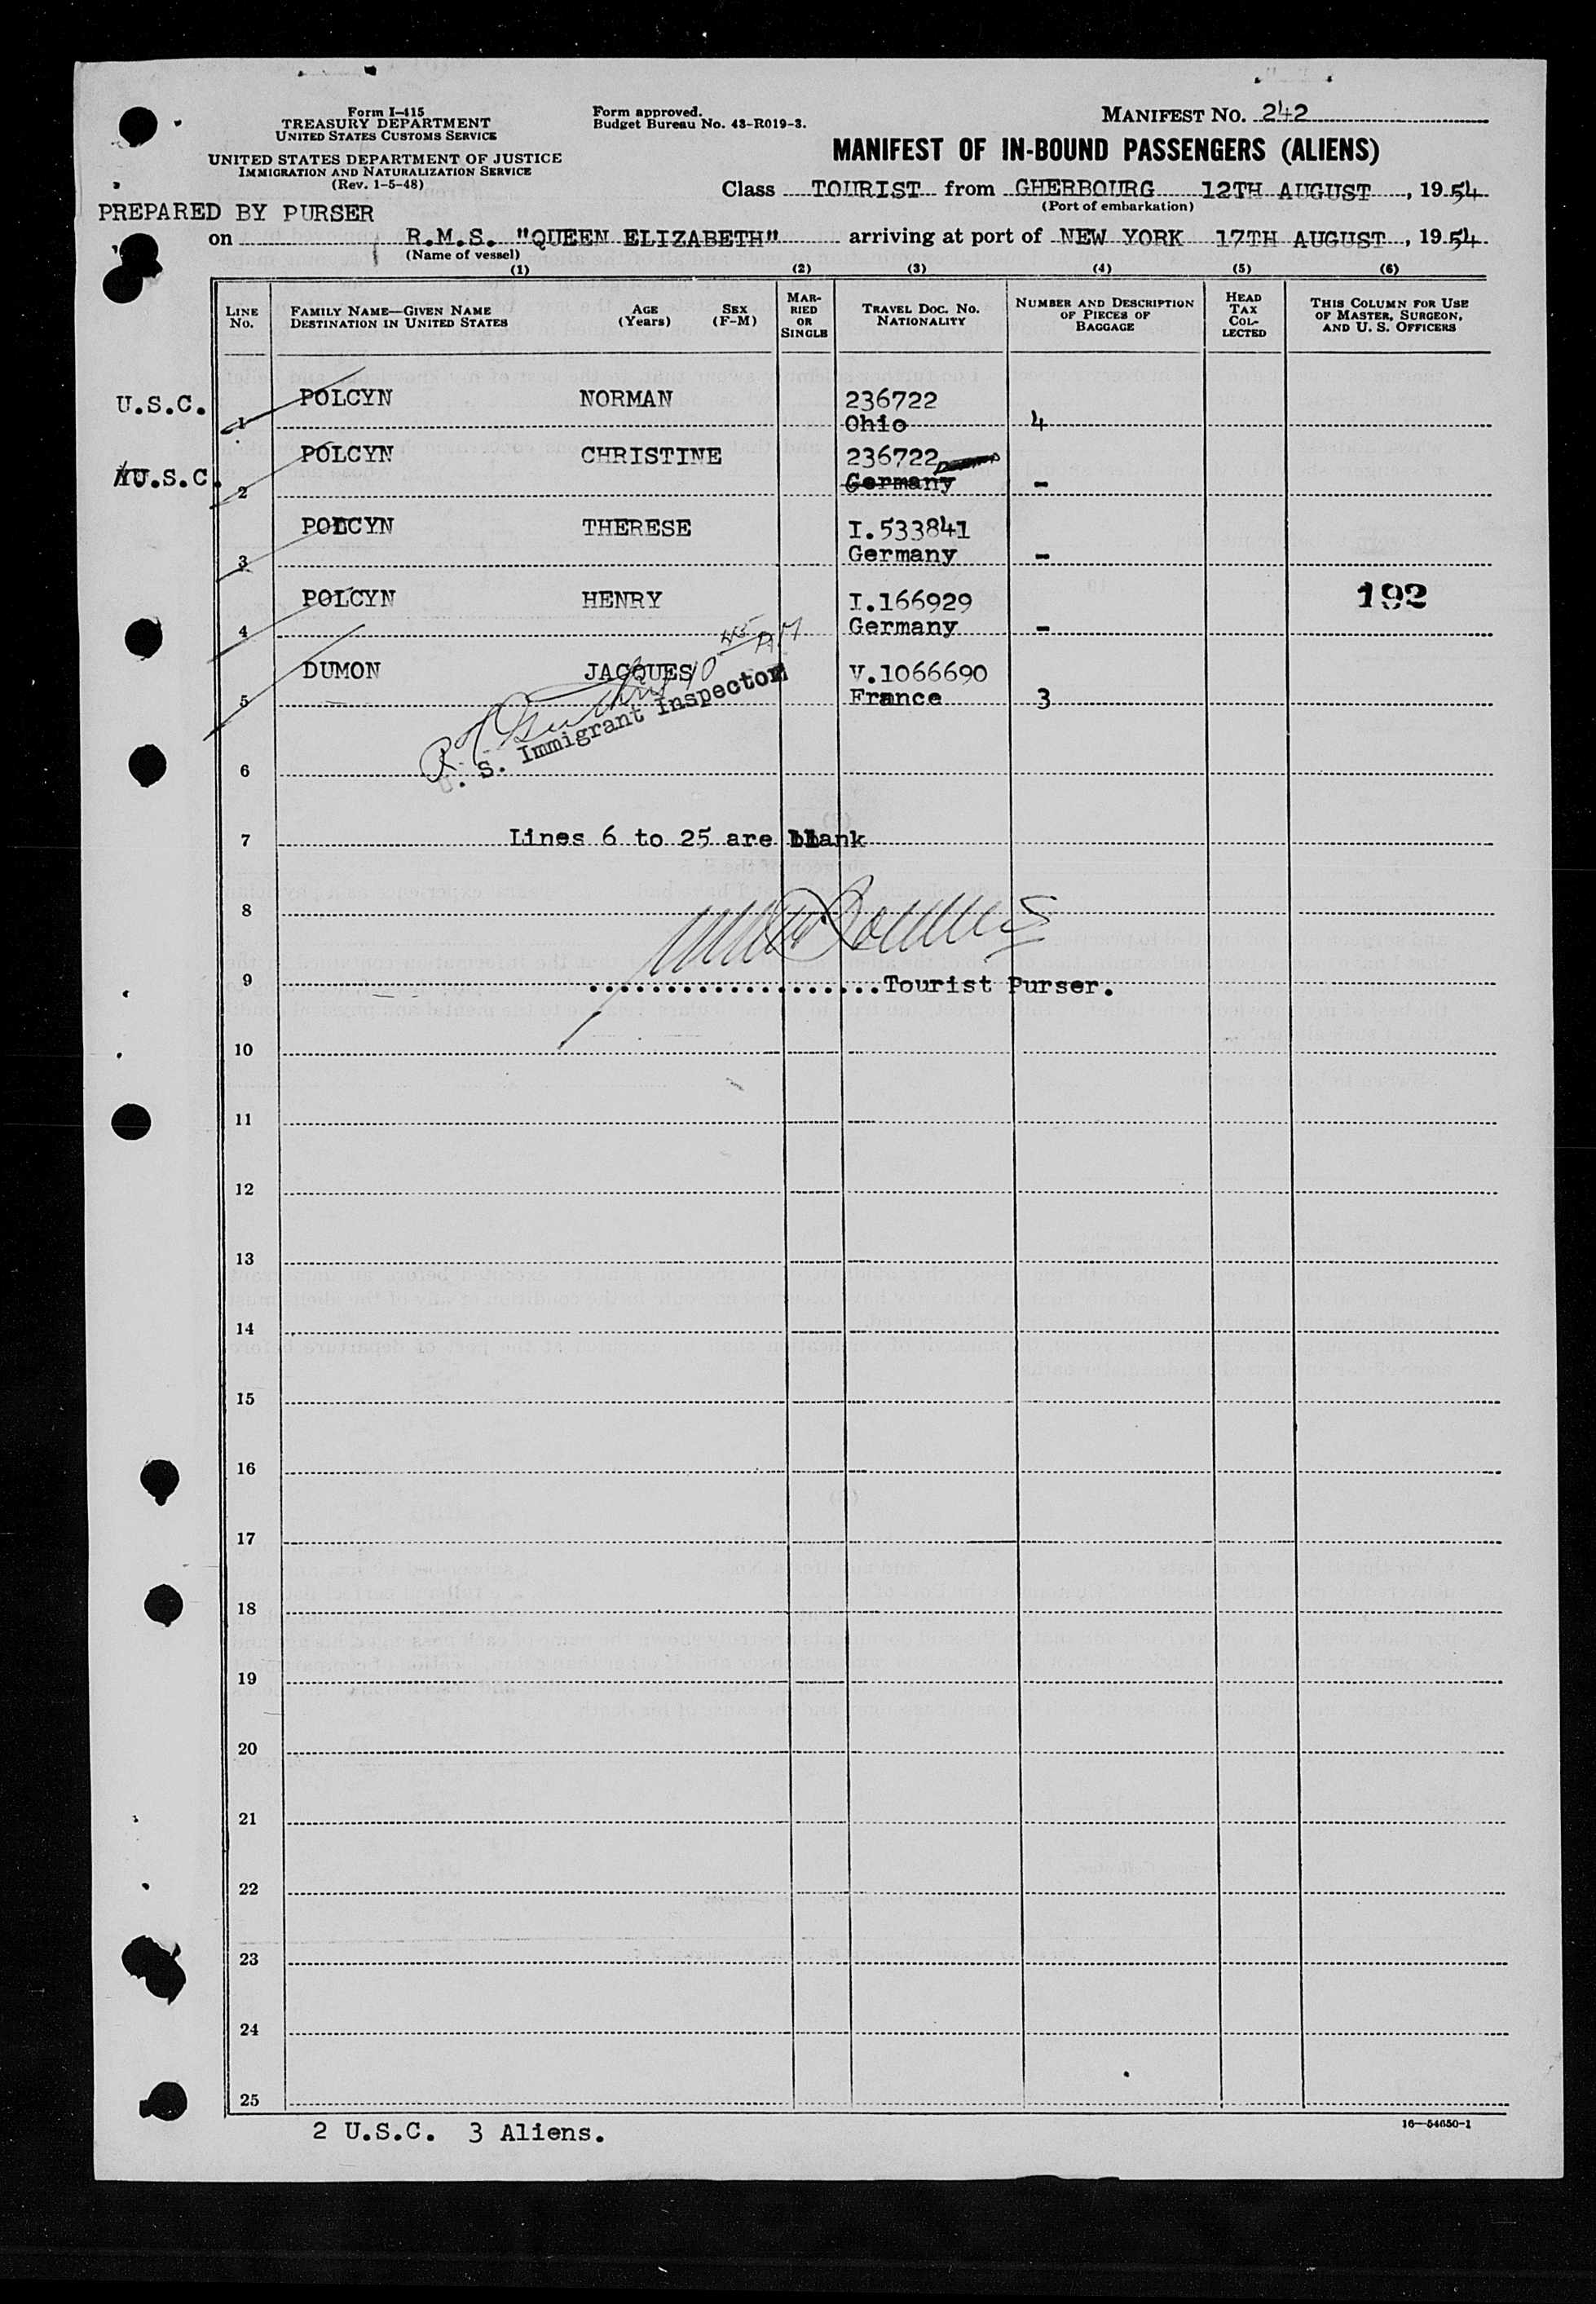 Form I-415
TREASURY DEPARTMENT
UNITED STATES CUSTOMS SERVICE
UNITED STATES DEPARTMENT OF JUSTICE
IMMIGRATION AND NATURALIZATION SERVICE
(Rev. 1-5-48)
Form approved.
Budget Bureau No. 43-R019-3.
MANIFEST NO. 242
MANIFEST OF IN-BOUND PASSENGERS (ALIENS)
Class TOURIST from GHERBOURG 12TH AUGUST, 1954
(Port of embarkation)
PREPARED BY PURSER
on R.M.S. "QUEEN ELIZABETH" arriving at port of NEW YORK 17TH AUGUST, 1954
(Name of vessel)
(1) (2) (3) (4) (5) (6)
LINE NO.
FAMILY NAME—GIVEN NAME
DESTINATION IN UNITED STATES
AGE (Years)
SEX (F-M)
MARRIED OR SINGLE
TRAVEL DOC. NO.
NATIONALITY
NUMBER AND DESCRIPTION OF PIECES OF BAGGAGE
HEAD TAX COLLECTED
THIS COLUMN FOR USE OF MASTER, SURGEON, AND U. S. OFFICERS
U.S.C. POLCYN NORMAN 236722
1 Ohio 4
U.S.C. POLCYN CHRISTINE 236722
2 Germany -
POLCYN THERESE I.533841
3 Germany -
POLCYN HENRY I.166929 192
4 Germany -
DUMON JACQUES V.1066690
5 France 3
10 45 AM
S. Immigrant Inspector
6
7 Lines 6 to 25 are blank
8
9 Tourist Purser.
10
11
12
13
14
15
16
17
18
19
20
21
22
23
24
25
2 U.S.C. 3 Aliens.
16—54650-1